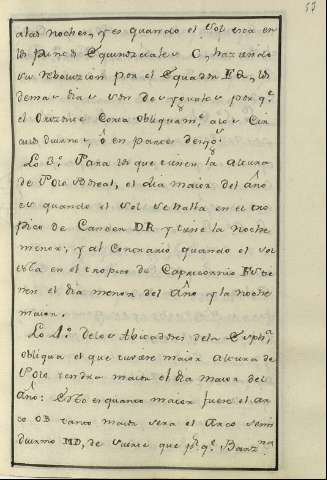 53
a las noches, y es quando el Sol esta en
los puntos Equinociales C, haziendo
su reboluzion por el Equador EQ, los
demas dias son desyguales porq.e
el Orizonte Corta obliquam.te a los Cir
culos diurnos, ô en partes desyg.s
Lo 3.º Para los que tienen la Altura
de Polo Boreal, el dia maior del Año
es quando el Sol se halla en el tro
pico de Cancer DR y tiene la noche
menor; y al Contrario quando el Sol
esta en el tropico de Capricornio
nen el dia menor del Año y la noche
maior.
Lo 4.º de los Abitadores de la Esph.a
obliqua el que tuviere maior Altura de
Polo tendra maior el dia maior del
Año: Esto es quanto maior fuere el ar
co OB tanto maior sera el Arco Semi
diurno MD, de suerte que